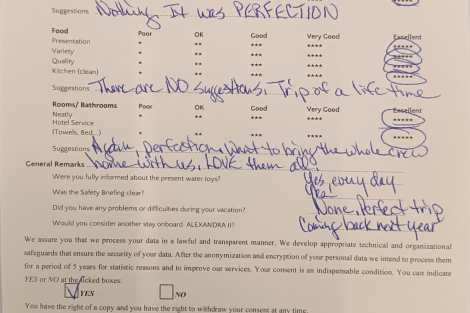 Suggestions Nothing. It was PERFECTION
Food Poor OK Good Very Good Excellent
Presentation * ** *** **** *****
Variety * ** *** **** *****
Quality * ** *** **** *****
Kitchen (clean) * ** *** **** *****
Suggestions There are NO suggestions. Trip of a life time
Rooms/ Bathrooms Poor OK Good Very Good Excellent
Neatly * ** *** **** *****
Hotel Service
(Towels, Bed,..) * ** *** **** *****
Suggestions Again, perfection. Want to bring the whole crew
General Remarks home with us. LOVE them all!
Were you fully informed about the present water toys? Yes, every day
Was the Safety Briefing clear? Yes
Did you have any problems or difficulties during your vacation? None. Perfect trip
Would you consider another stay onboard ALEXANDRA II? Coming back next year
We assure you that we process your data in a lawful and transparent manner. We develop appropriate technical and organizational
safeguards that ensure the security of your data. After the anonymization and encryption of your personal data we intend to process them
for a period of 5 years for statistic reasons and to improve our services. Your consent is an indispensable condition. You can indicate
YES or NO at the ticked boxes:
YES NO
You have the right of a copy and you have the right to withdraw your consent at any time.